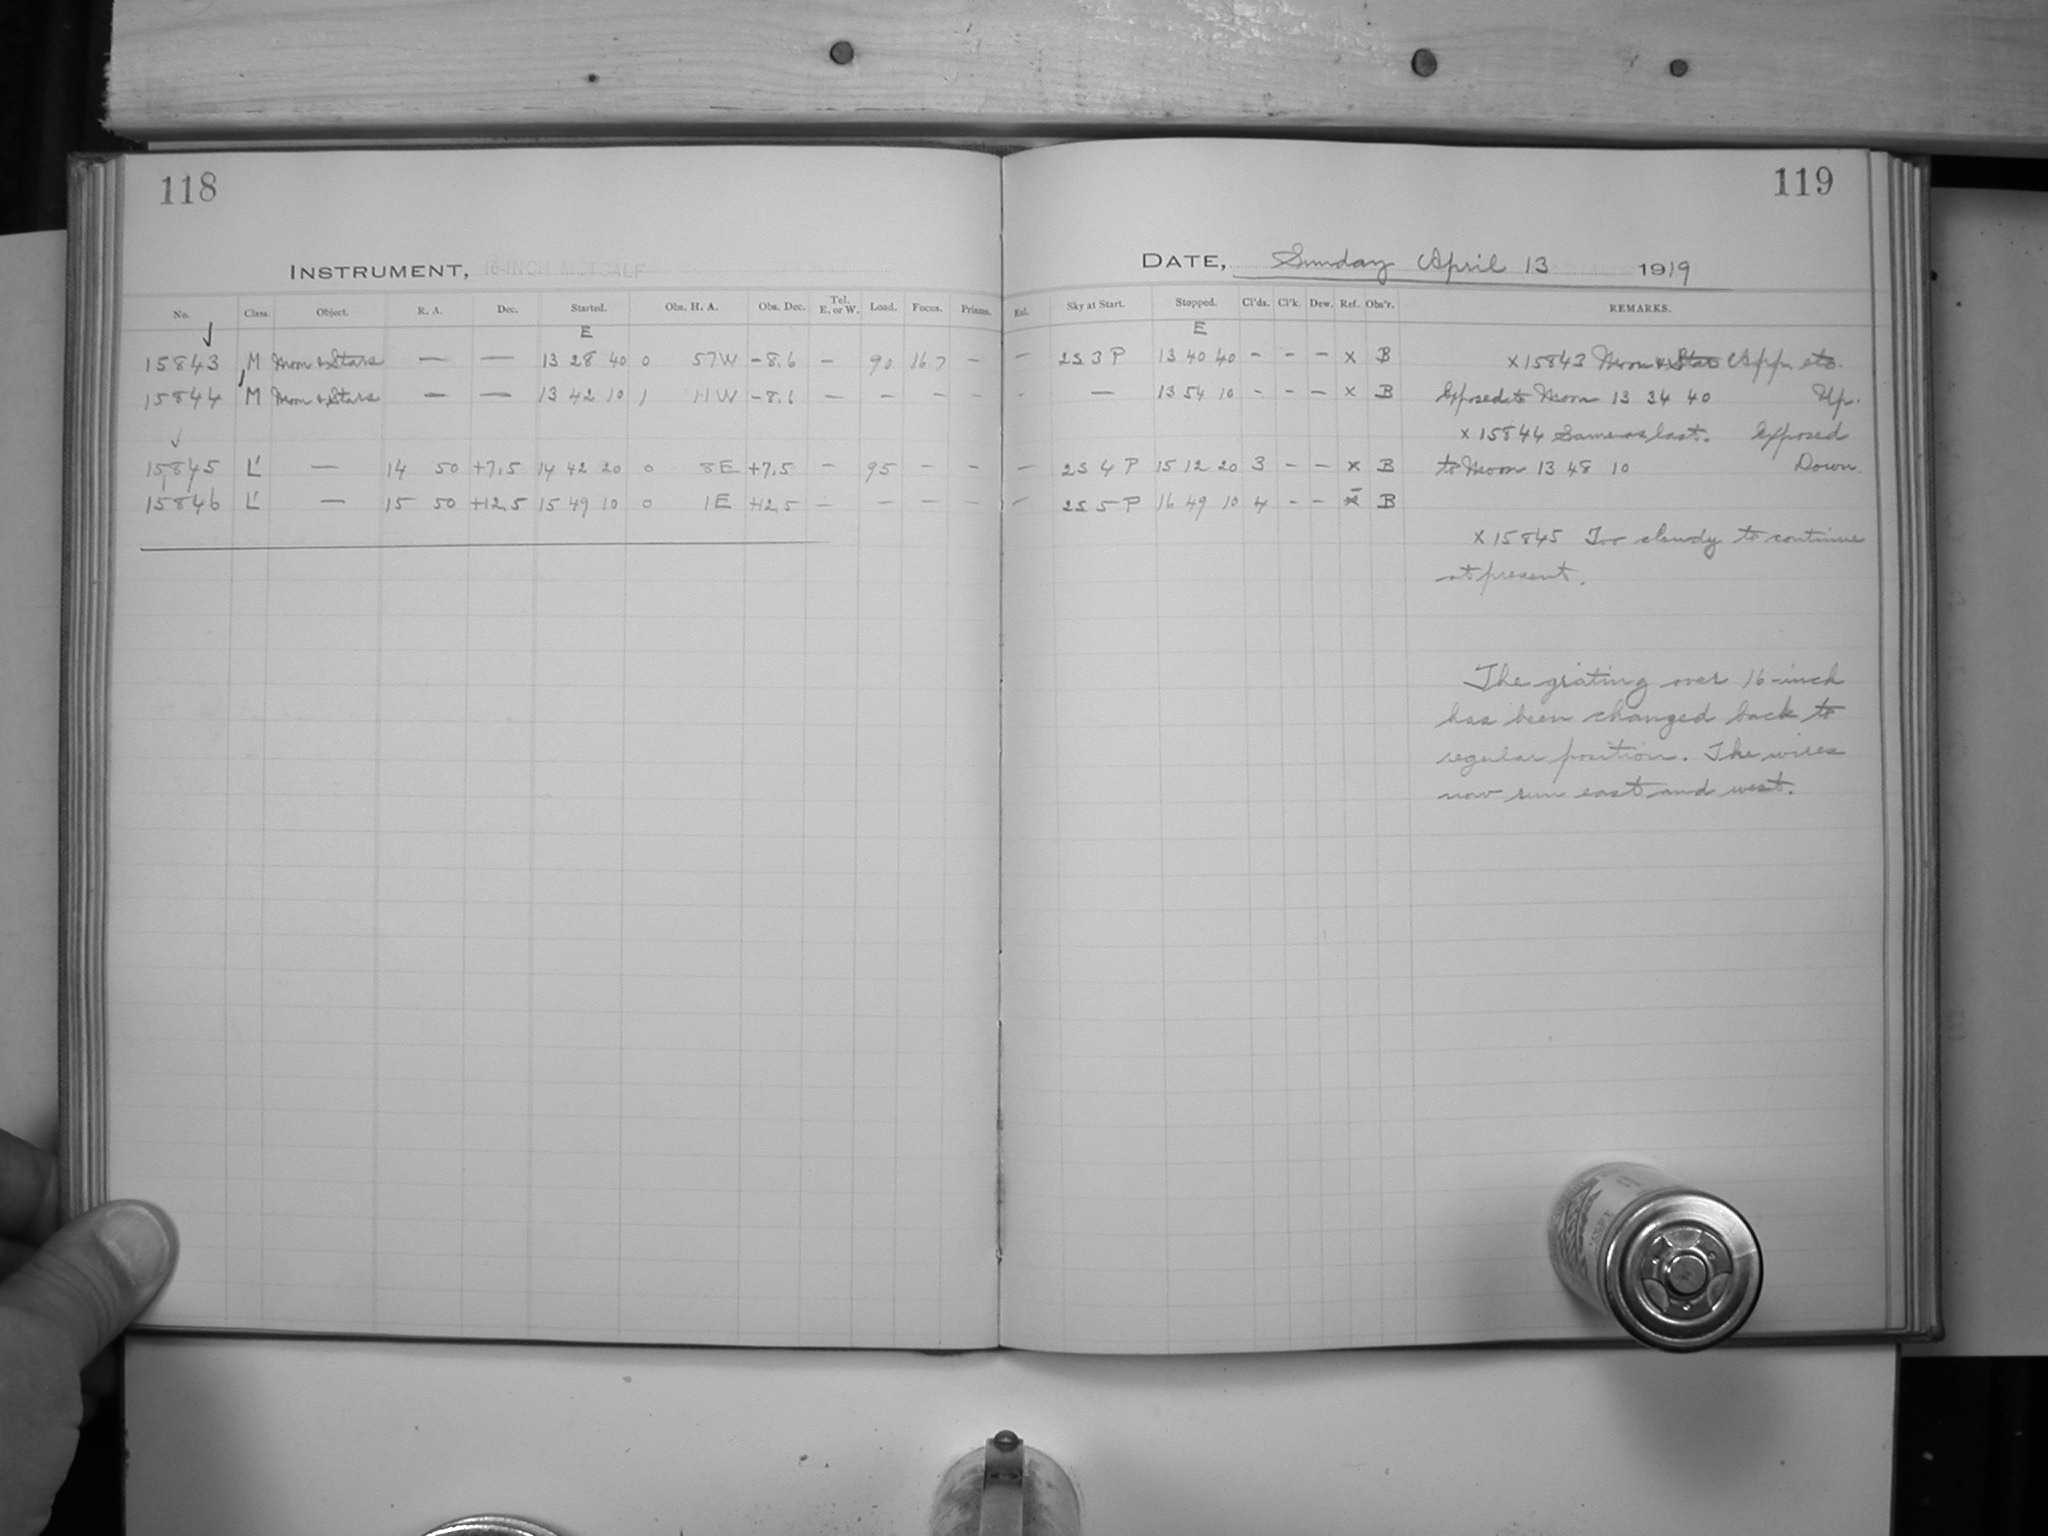 118
INSTRUMENT, 16-INCH METCALF
No. Class. Object. R. A. Dec. Started. Obs. H. A. Obs. Dec. Tel. E. or W. Load. Focus. Prisms.
E
15843 M Moon & Stars — — 13 28 40 0 57 W -8.6 – 90 16.7 –
15844 M Moon & Stars — — 13 42 10 1 11 W -8.6 – – – –
15845 L' — 14 50 +7.5 14 42 20 0 8 E +7.5 – 95 – –
15846 L' — 15 50 +12.5 15 49 10 0 1 E +12.5 – – – –
119
DATE, Sunday April 13 1919
Exl. Sky at Start. Stopped. Cl'ds. Cl'k. Dew. Ref. Obs'r. REMARKS.
E
– 2S 3 P 13 40 40 – – – x B
– — 13 54 10 – – – x B
– 2S 4 P 15 12 20 3 – – x B
– 2S 5 P 16 49 10 4 – – – B
x 15843 Moon & Star App. etc.
Exposed to Moon 13 34 40 Up.
x 15844 Same as last. Exposed
to Moon 13 48 10 Down.
x 15845 Too cloudy to continue
at present.
The grating over 16-inch
has been changed back to
regular position. The wires
now run east and west.